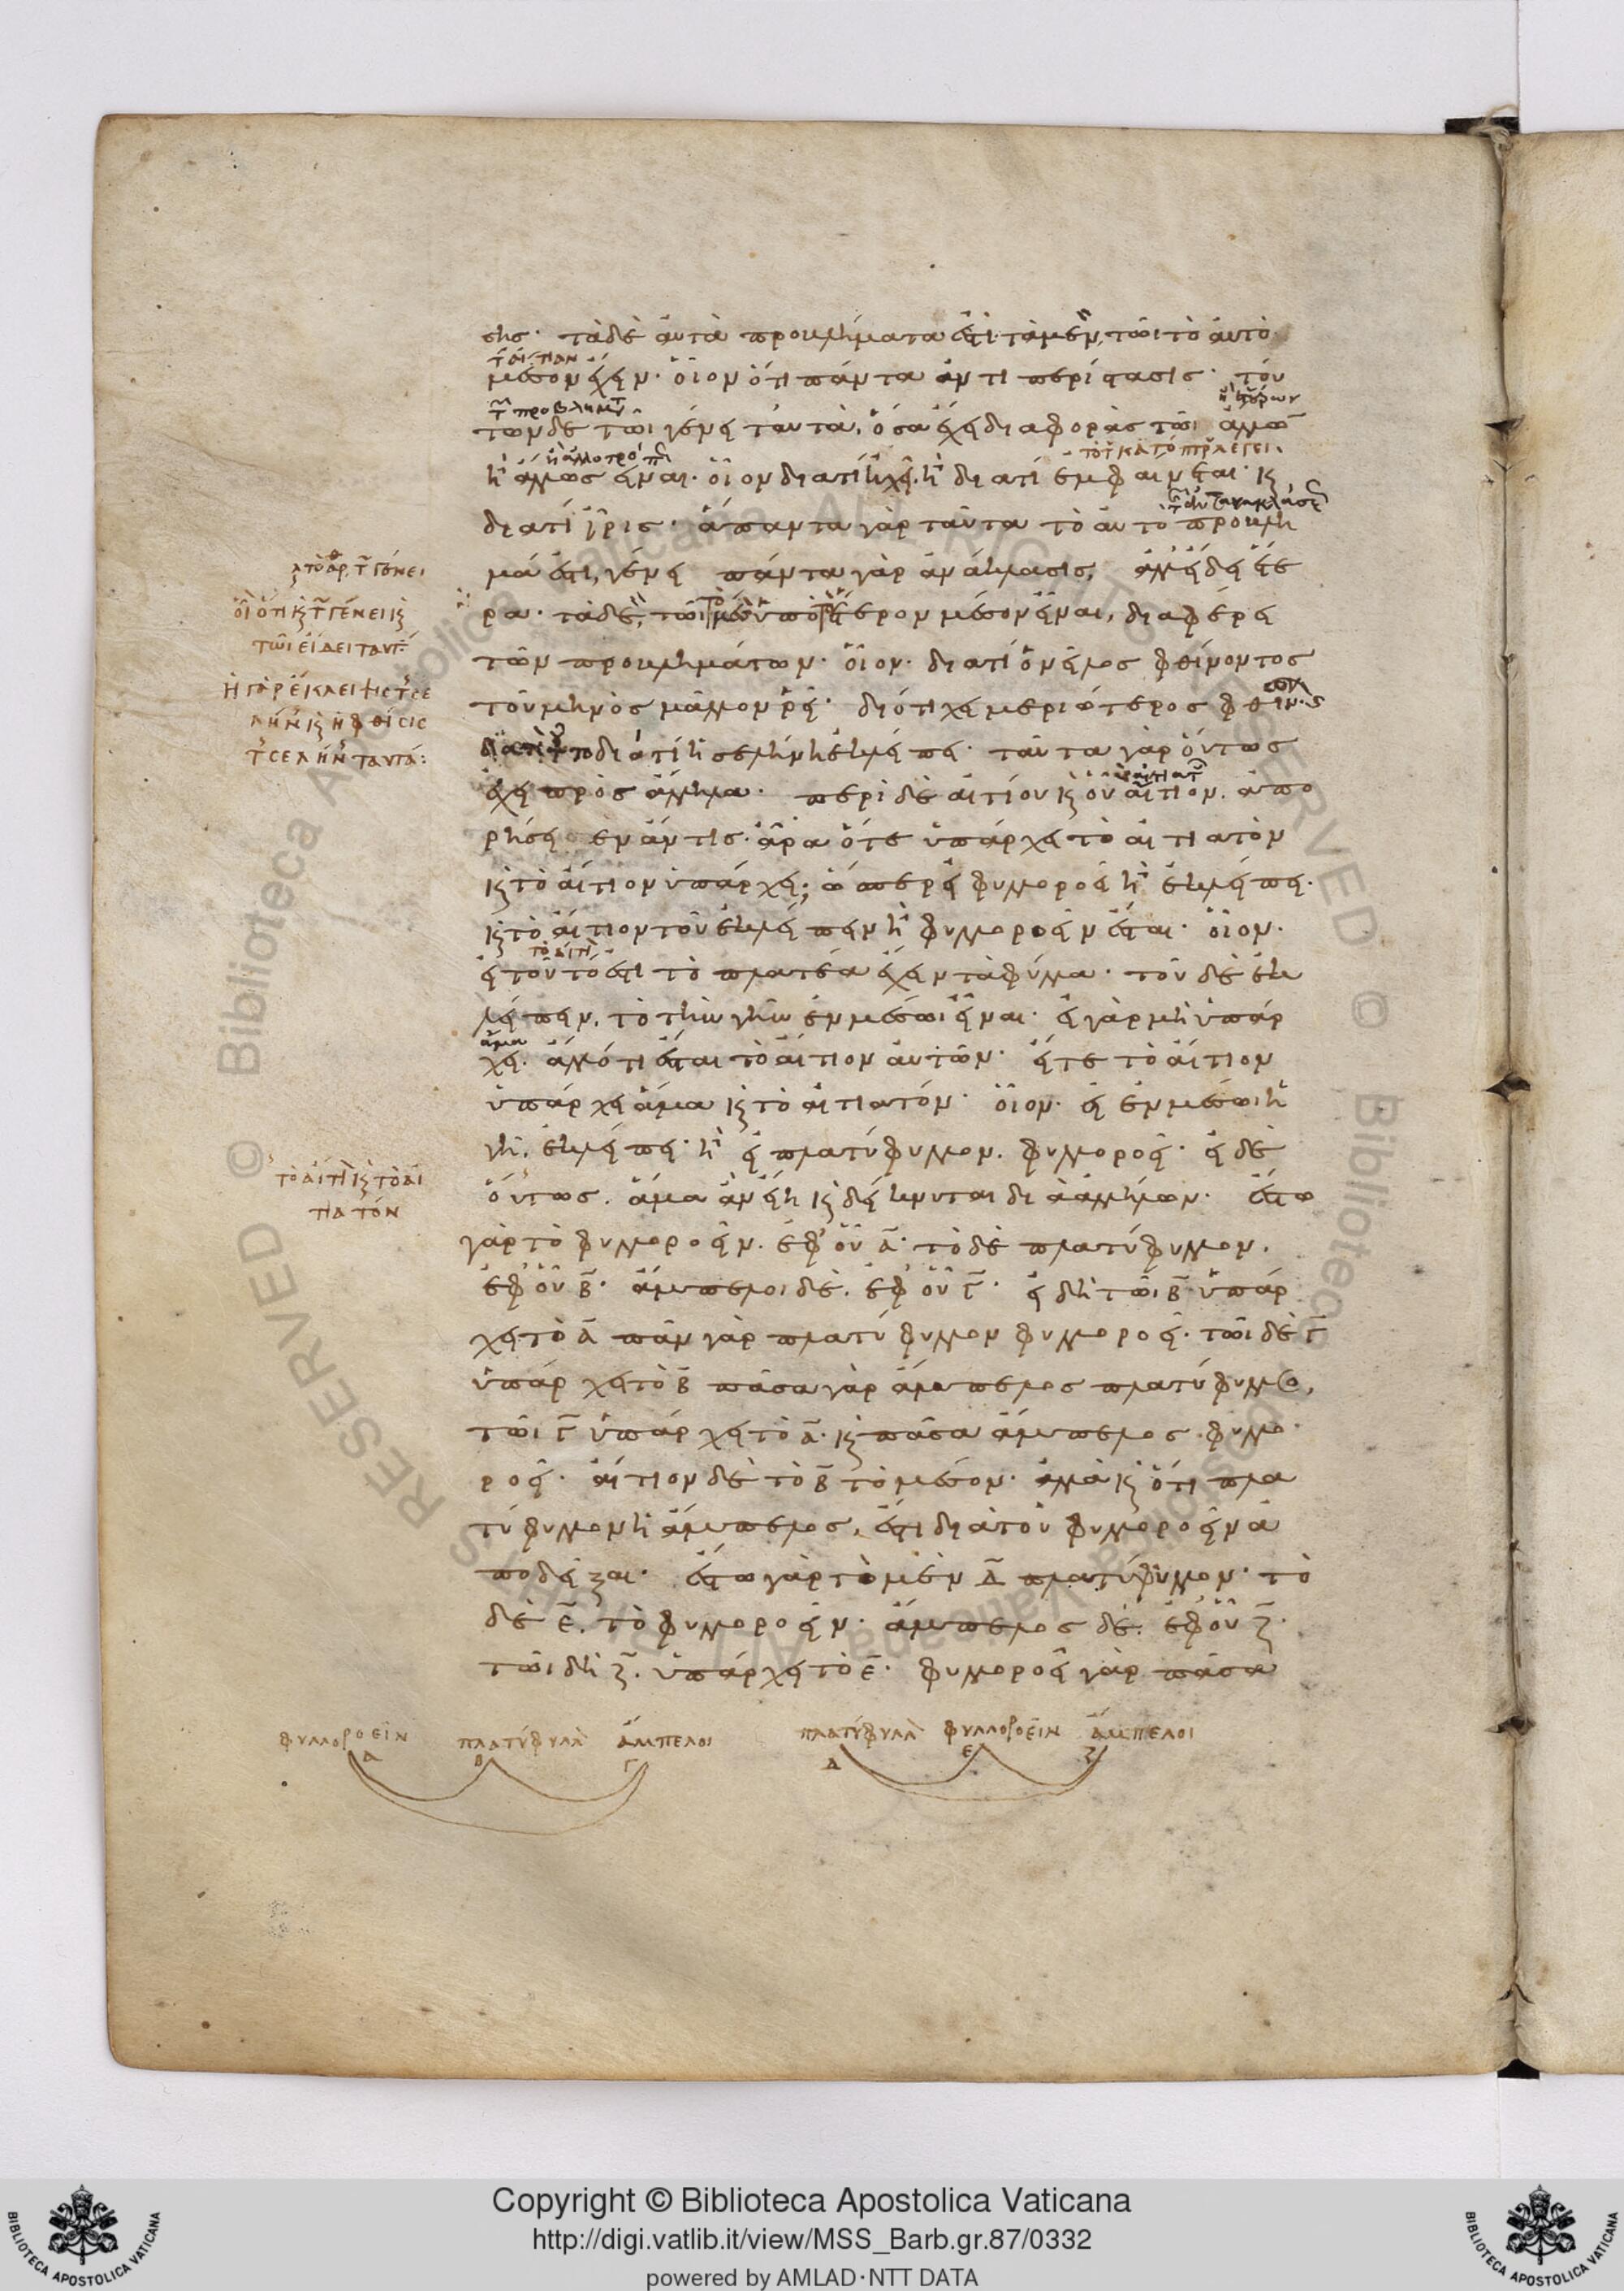 σης· τὰ δὲ αὐτὰ προβλήματα ἐστὶ· τὰ μὲν, τῶι τὸ αὐτὸ
μέσον ἔχειν· οἷον ὅτι πάντα ἀντιπερίστασις· τού
των δὲ τῶι γένει ταὐτὰ, ὅσα ἔχει διαφορὰς τῶι ἄλλων
ἢ ἄλλως εἶναι· οἷον διατί ἠχεῖ· ἢ διατί ἐμφαίνεται· κ
διατί ἶρις· ἅπαντα γὰρ ταῦτα τὸ αὐτὸ πρόβλη
μά ἐστι, γένει πάντα γὰρ ἀνάκλασις, ἀλλ' εἴδει ἕτε
ρα· τὰ δὲ, τῶι τὸ μέσον ὑπὸ τὸ ἕτερον μέσον εἶναι, διαφέρει
τῶν προβλημάτων· οἷον· διατί ὁ νεῖλος φθίνοντος
τοῦ μηνὸς μᾶλλον ῥεῖ· διότι χειμεριώτερος φθίνων
διατί διατί ἡ σελήνη ἐκλείπει· ταῦτα γὰρ οὕτως
ἔχει πρὸς ἄλληλα· περὶ δὲ αἰτίου κ οὗ αἴτιον. ἀπο
ρήσειεν ἄν τις· ἆρα ὅτε ὑπάρχει τὸ αἰτιατὸν
κ τὸ αἴτιον ὑπάρχει; ὥσπερ εἰ φυλλοροεῖ ἢ ἐκλείπει·
κ τὸ αἴτιον τοῦ ἐκλείπειν ἢ φυλλοροεῖν ἔσται· οἷον·
εἰ τοῦτό ἐστι τὸ πλατέα ἔχειν τὰ φύλλα· τοῦ δὲ ἐκ
λείπειν, τὸ τὴν γῆν ἐν μέσωι εἶναι· εἰ γὰρ μὴ ὑπάρ
χει· ἄλλό τι ἔσται τὸ αἴτιον αὐτῶν· εἴ τε τὸ αἴτιον
ὑπάρχει ἅμα κ τὸ αἰτιατόν· οἷον· εἰ ἐν μέσωι ἡ
γῆ, ἐκλείπει· ἢ εἰ πλατύφυλλον, φυλλοροεῖ· εἰ δὲ
οὕτως, ἅμα ἂν εἴη κ δεικνύται δι' ἀλλήλων· ἔστω
γὰρ τὸ φυλλοροεῖν, ἐφ' οὗ Α· τὸ δὲ πλατύφυλλον,
ἐφ' οὗ Β· ἄμπελοι δὲ, ἐφ' οὗ Γ· εἰ δὴ τῶι Β ὑπάρ
χει τὸ Α πᾶν γὰρ πλατύφυλλον φυλλοροεῖ· τῶι δὲ Γ
ὑπάρχει τὸ Β πᾶσα γὰρ ἄμπελος πλατύφυλλος,
τῶι Γ ὑπάρχει τὸ Α· κ πᾶσα ἄμπελος φυλλο
ροεῖ· αἴτιον δὲ τὸ Β τὸ μέσον· ἀλλὰ κ ὅτι πλα
τύφυλλον ἡ ἄμπελος, ἔστι διὰ τοῦ φυλλοροεῖν ἀ
ποδεῖξαι· ἔστω γὰρ τὸ μὲν Δ πλατύφυλλον· τὸ
δὲ Ε, τὸ φυλλοροεῖν· ἄμπελος δὲ, ἐφ' οὗ Ζ·
τῶι δὴ Ζ, ὑπάρχει τὸ Ε· φυλλοροεῖ γὰρ πᾶσα
τῶι εἴδει ταυτ
τὸ αἴτι κ τὸ αἰ
τιατόν
φυλλοροεῖν πλατύφυλλ ἄμπελοι
Α Β Γ
πλατύφυλλ φυλλοροεῖν ἄμπελοι
Δ Ε Ζ
Copyright © Biblioteca Apostolica Vaticana
http://digi.vatlib.it/view/MSS_Barb.gr.87/0332
powered by AMLAD·NTT DATA
BIBLIOTECA APOSTOLICA VATICANA
BIBLIOTECA APOSTOLICA VATICANA